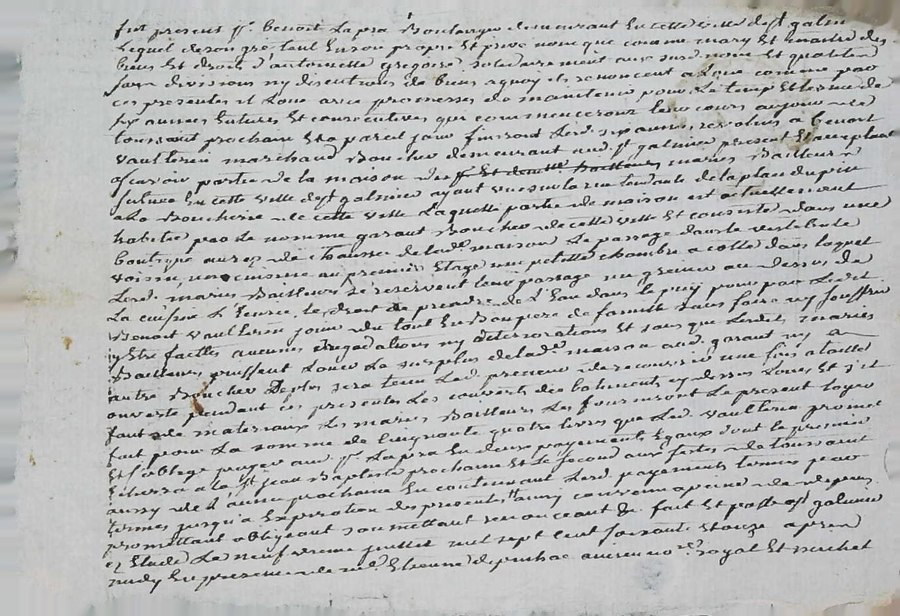 fut present Sr benoit Lapra Boulanger demeurant En cette ville de st galmier
Lequel de son gré tant En son propre Et privé nom que comme mary Et maitre des
biens Et droits d'antoinette gregoire solidairement aux susd noms Et qualités
sans division ny discution de biens aquoy ils renoncent a Loué comme par
ces presentes il Loue avec promesses de maintenir pour Le temps Et terme de
six années Entieres Et consecutives que commenceront leur cours au jour de
toussaint prochain Et a pareil jour finiront Lesd. six années revolues a benoit
vaulterin marchand Boucher demeurant aud. st galmier present Et acceptant
scavoir partie de la maison des mariés Bailleurs
située En cette ville de st galmier ayant vue sur la rue tendante de la place du puy
a La Boucherie de cette ville Laquelle partie de maison est actuellement
habitée par Le nommé garant Boucher de cette ville Et consiste dans une
boutique au rez de chaussée de lad. maison Le passage dans le vestibule
voisin, une cuisine au premier Etage une petitte chambre a cotté dans laquelle
Lesd. mariés Bailleurs se reservent leur passage un grenier au dessus de
La cuisine L'Ecurie, Le droit de prendre de L'Eau dans le puy pour par Ledit
Benoit vaulterin jouir du tout En Bon pere de famille sans faire ny souffrir
y Etre faittes aucunes degradations ny deteriorations Et sans que Lesdits mariés
Bailleurs puissent Louer Le surplus de lad. maison aud. garant ny a
autre Boucher De plus sera tenu Led. preneur de recouvrir une fois a taille
ouverte pendant ces presentes Les couverts des batiments cy dessus Loués Et s'il
faut de materiaux Les mariés Bailleurs Les fourniront Le present Loyer
fait pour La somme de Cinquante quatre Livres que Led. vaulterin promet
Et s'oblige payer aud. Sr Lapra En deux payements Egaux dont le premier
Echerra a la St jean Baptiste prochaine Et le second aux fetes de toussaint
aussy de L'année prochaine En continuant Lesd. payements termes par
termes jusqu'a Expiration des presentes ainsy convenu a peine de depens
promettant obligeant soumettant renonceant &c. fait Et passé a st galmier
Etude Le neuf juillet mil sept cent soixante Et onze apres
midy En presence de me Etienne royal Et michel